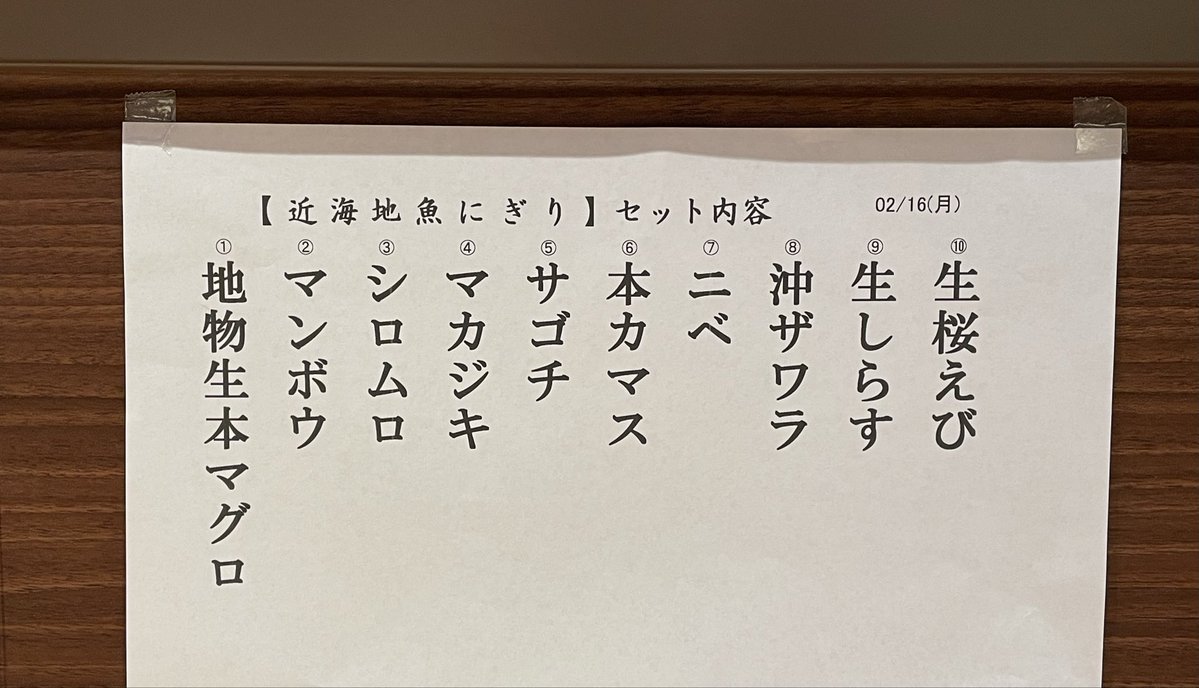 【近海地魚にぎり】セット内容 02/16(月)
①地物生本マグロ
②マンボウ
③シロムロ
④マカジキ
⑤サゴチ
⑥本カマス
⑦ニベ
⑧沖ザワラ
⑨生しらす
⑩生桜えび